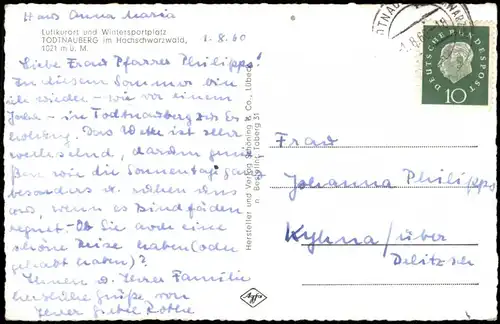 Haus Anna Maria
Luftkurort und Wintersportplatz
TODTNAUBERG im Hochschwarzwald,
1021 m ü. M.
1.8.60
Liebe Frau Pfarrer Philipps!
In diesem Sommer bin
ich wieder - wie vor einem
Jahr - in Todtnauberg zur Er
holung. Das Wetter ist sehr
wechselnd, darum genie
ßen wir die Sonnentage ganz
besonders u. ruhen uns
aus, wenn es Bindfäden
regnet. Ob Sie auch eine
schöne Reise haben (oder
gehabt haben)?
Ihnen u. Ihrer Familie
herzliche Grüße von
Ihrer
Hersteller und Verlag Schöning & Co., Lübeck
Bestellnr. Toberg 31
Agfa
DEUTSCHE BUNDESPOST
10
Frau
Johanna Philipps
Kyhna/über
Delitzsch